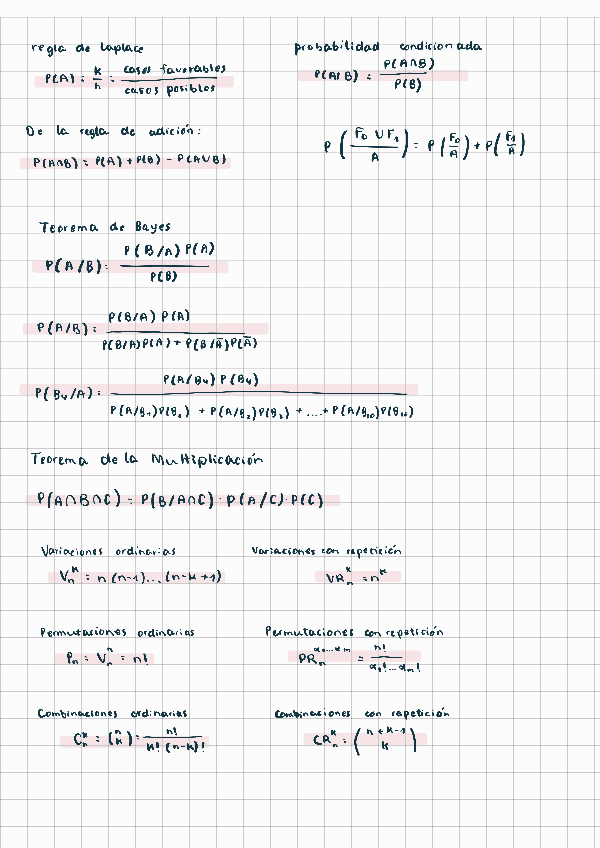 regla de laplace
P(A) = k/n = casos favorables / casos posibles
probabilidad condicionada
P(A/B) = P(A∩B) / P(B)
De la regla de adición:
P(A∩B) = P(A) + P(B) - P(A∪B)
P((F₀ ∪ F₁)/A) = P(F₀/A) + P(F₁/A)
Teorema de Bayes
P(A/B) = P(B/A) P(A) / P(B)
P(A/B) = P(B/A) P(A) / P(B/A)P(A) + P(B/A̅)P(A̅)
P(B₄/A) = P(A/B₄) P(B₄) / P(A/B₁)P(B₁) + P(A/B₂)P(B₂) + ....+ P(A/B₁₀)P(B₁₀)
Teorema de la Multiplicación
P(A∩B∩C) = P(B/A∩C) · P(A/C) · P(C)
Variaciones ordinarias
Vₙᵏ = n (n-1)...(n-k+1)
Variaciones con repetición
VRₙᵏ = nᵏ
Permutaciones ordinarias
Pₙ = Vₙⁿ = n!
Permutaciones con repetición
PRₙ^(α₁...αₘ) = n! / α₁!...αₘ!
Combinaciones ordinarias
Cₙᵏ = (n k) = n! / k! (n-k)!
Combinaciones con repetición
CRₙᵏ = (n+k-1 k)